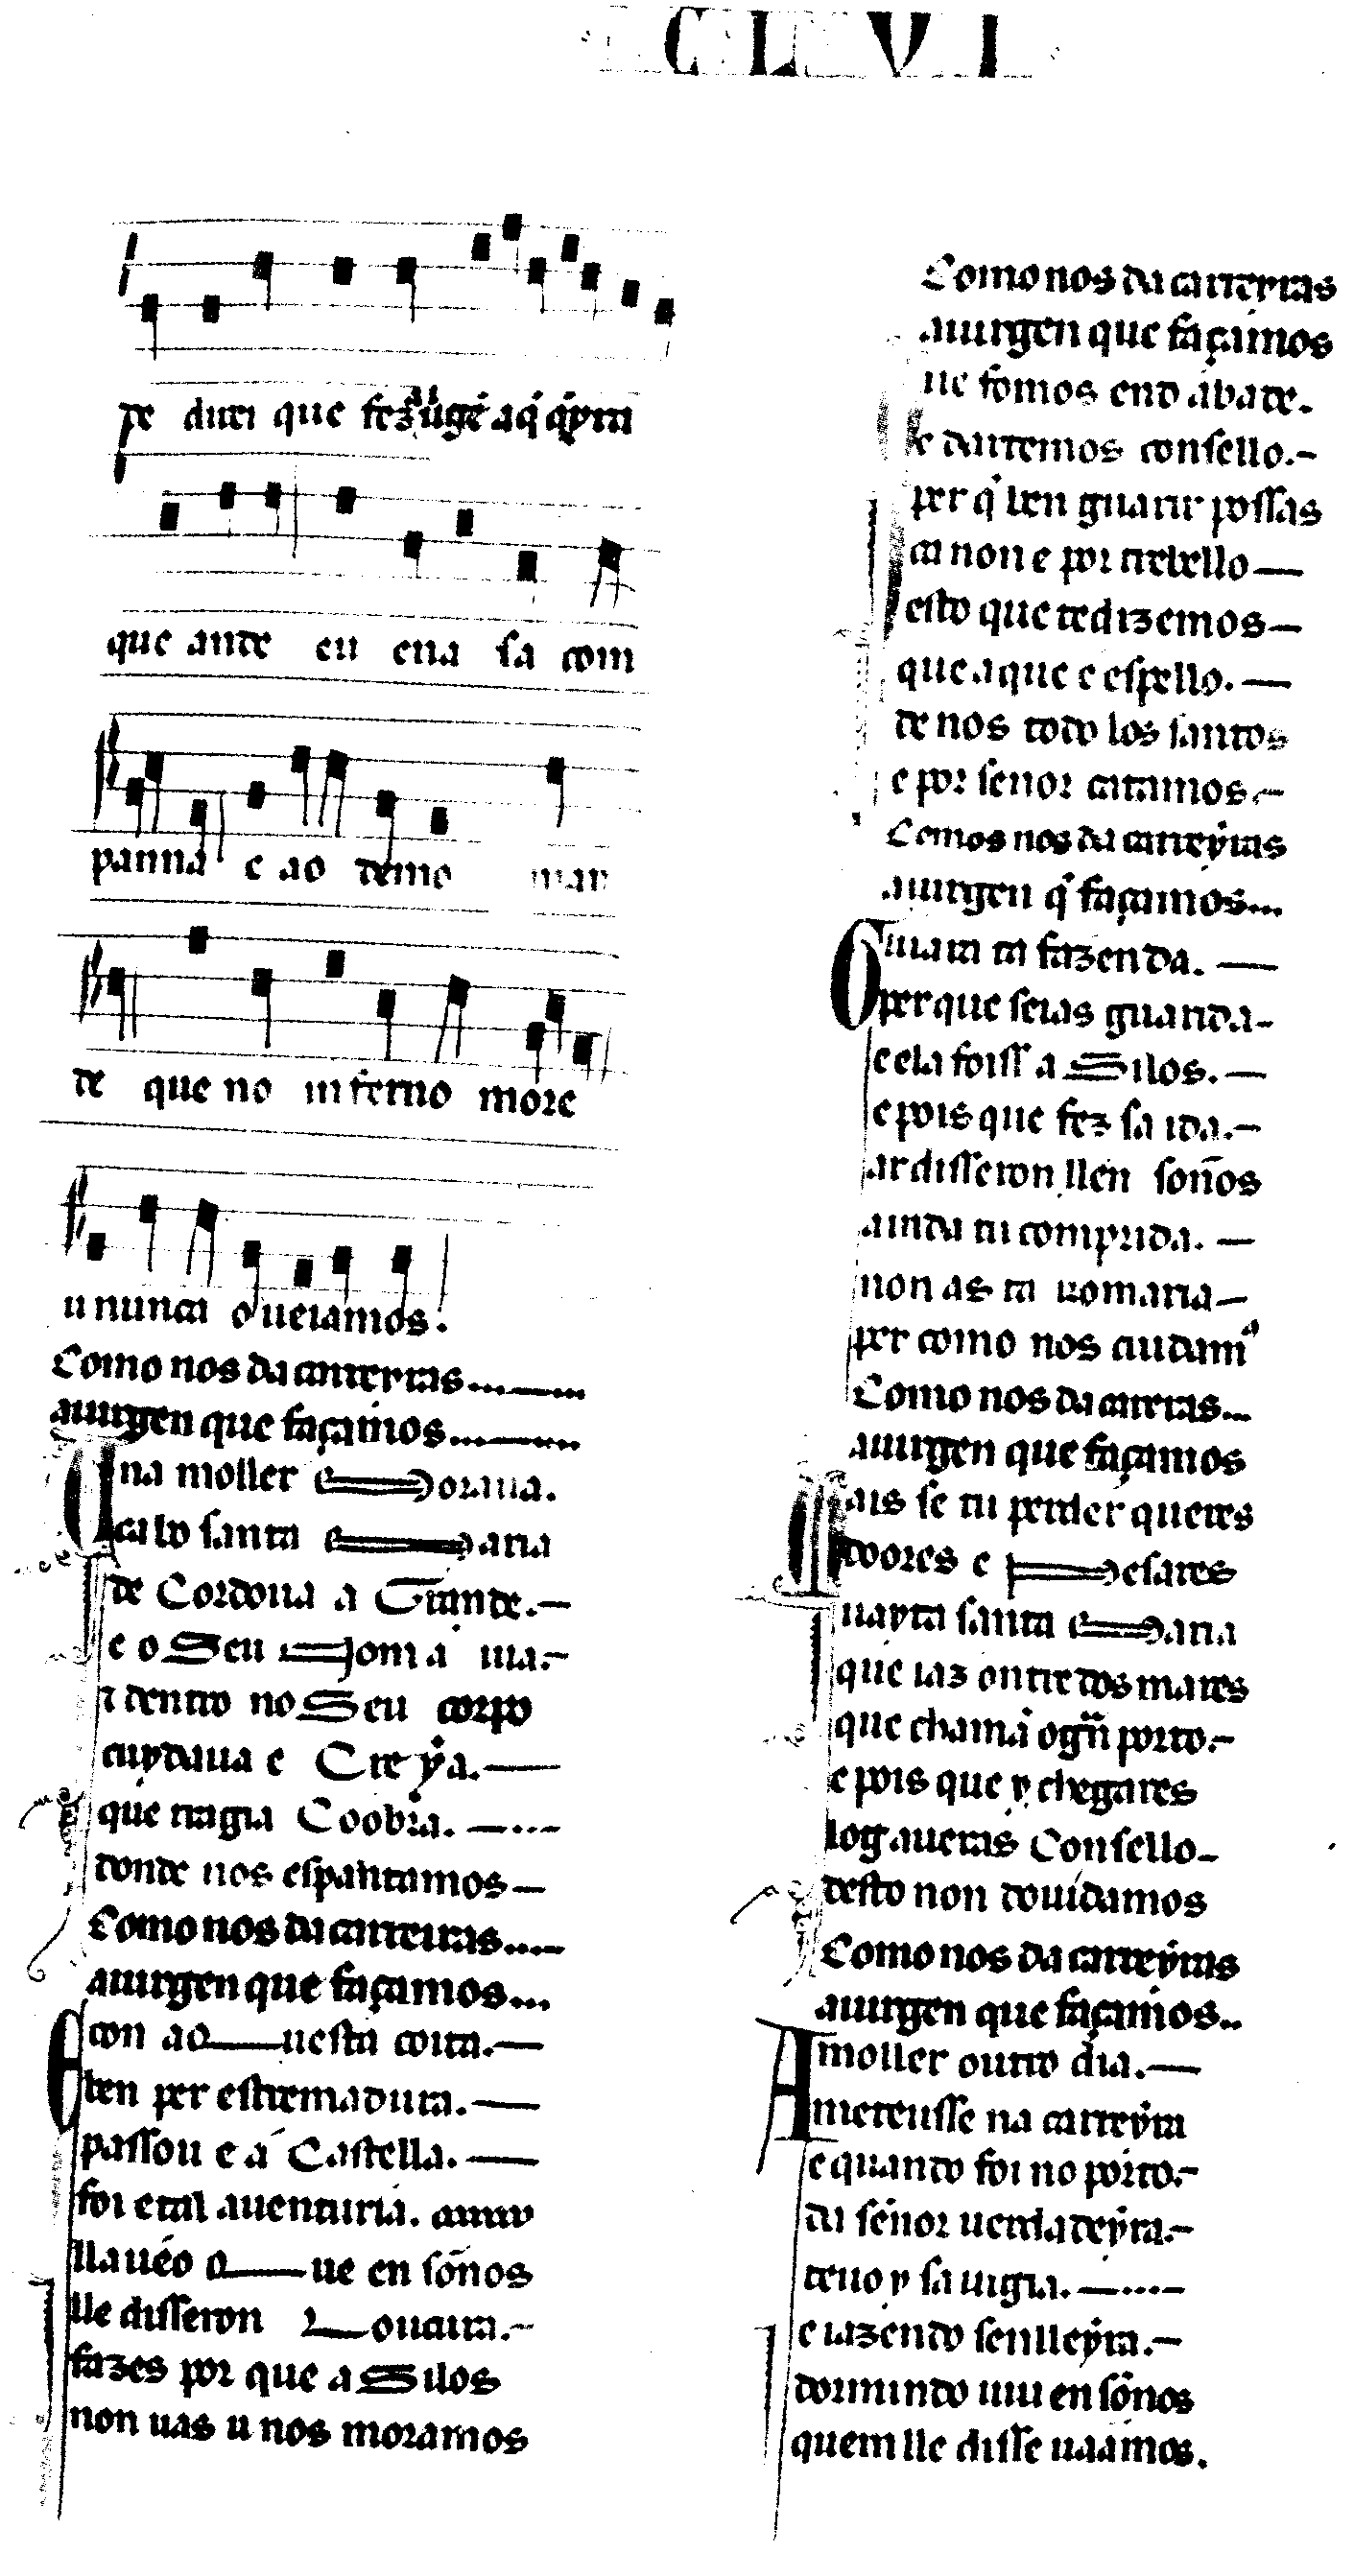 C L V I
de direi que fez a uirgē aq̇ q̇yra
que ande en ena sa com
panna e ao demo man
de que no inferno more
u nunca o ueiamos:
Como nos da carreyras
a uirgen que façamos
Una moller e moraua.
cabo santa Maria
de Cordoua a Grande.
e o Seu
dentro no Seu corpo
cuydaua e Creýa.
que tragia Coobra.
donde nos espantamos
Como nos da carreiras
a uirgen que façamos
E con aquesta coita.
ben per estremadura.
passou e á Castella.
foi e tal auentura.
lla uẽo que en sõnos
lle disseron Loucura.
fazes por que a Silos
non uas u nos moramos
Como nos da carreyras
a uirgen que façamos
Que somos end abade.
e darremos consello.
per q̇ ben guarir possas
ca non e por trebello
esto que te dizemos
que aque e espello.
de nos todolos santos
e por senor catamos.
Como nos da carreýras
a uirgen q̇ façamos
Oira ta fazenda.
per que seias guarida
e ela foiss a Silos.
e pois que fez sa ida.
ar disseron ll en sonños
ainda tu comprida.
non as ta romaria
per como nos cuidamᵒ
Como nos da carreras
a uirgen que façamos
Mais se tu perder queres
doores e Pesares
uayta santa Maria
que iaz ontre dos mares
que chamã o gñ porto.
e pois que y chegares
log aueras Consello
desto non douidamos
Como nos da carreýras
a uirgen que façamos
A moller outro dia.
meteusse na carreýra
e quando foi no porto.
da sẽnor uerdadeýra.
teuo y sa uigia.
e iazendo senlleýra.
dormindo uiu en sõnos
quem lle disse uaamos.